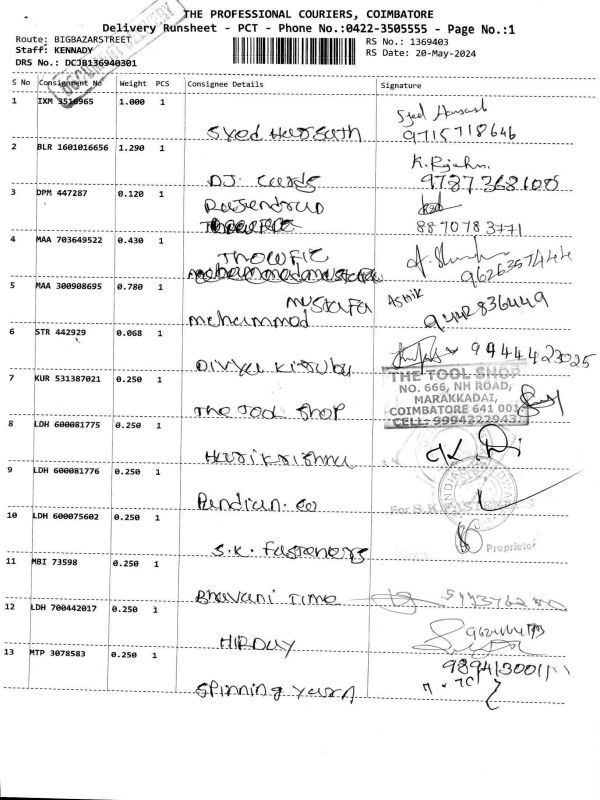 THE PROFESSIONAL COURIERS, COIMBATORE
Delivery Runsheet - PCT - Phone No.:0422-3505555 - Page No.:1
Route: BIGBAZARSTREET
RS No.: 1369403
Staff: KENNADY
RS Date: 20-May-2024
DRS No.: DCJB136940301
S No Consignment No Weight PCS Consignee Details Signature
1 IXM 3516965 1.000 1
Syed Hassath
9715718646
2 BLR 1601016656 1.290 1
DJ. Cards
9787368100
3 DPM 447287 0.120 1
Rajendran
8870783771
4 MAA 703649522 0.430 1
Thowfic
9626357444
5 MAA 300908695 0.780 1
Mustafa
Mohammod
Ashik
6 STR 442929 0.068 1
Divya Kissubu
9944423025
7 KUR 531387021 0.250 1
The Tool Shop
THE TOOL SHOP
NO. 666, NH ROAD,
MARAKKADAI,
COIMBATORE 641 001
CELL: 9994322943
8 LDH 600081775 0.250 1
Harikrishna
9 LDH 600081776 0.250 1
Pandian. co
10 LDH 600075602 0.250 1
S.K. Fasteners
Proprietor
11 MBI 73598 0.250 1
Bhavani Time
12 LDH 700442017 0.250 1
HIRDAY
13 MTP 3078583 0.250 1
Spinning Yaarn